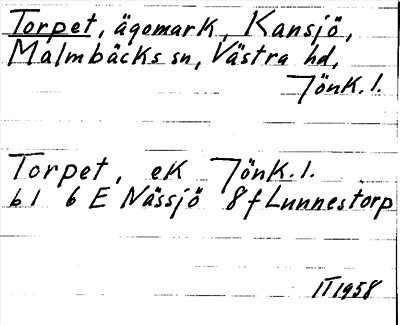 Torpet, ägomark, Kansjö,
Malmbäcks sn, Västra hd,
Jönk. l.
Torpet, ek Jönk. l.
bl 6 E Nässjö 8f Lunnestorp
II 1958